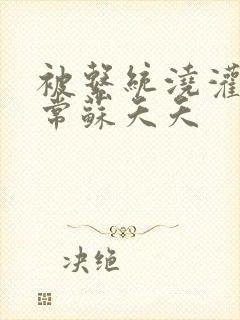 被繫統澆灌
常蘇夭夭
决绝